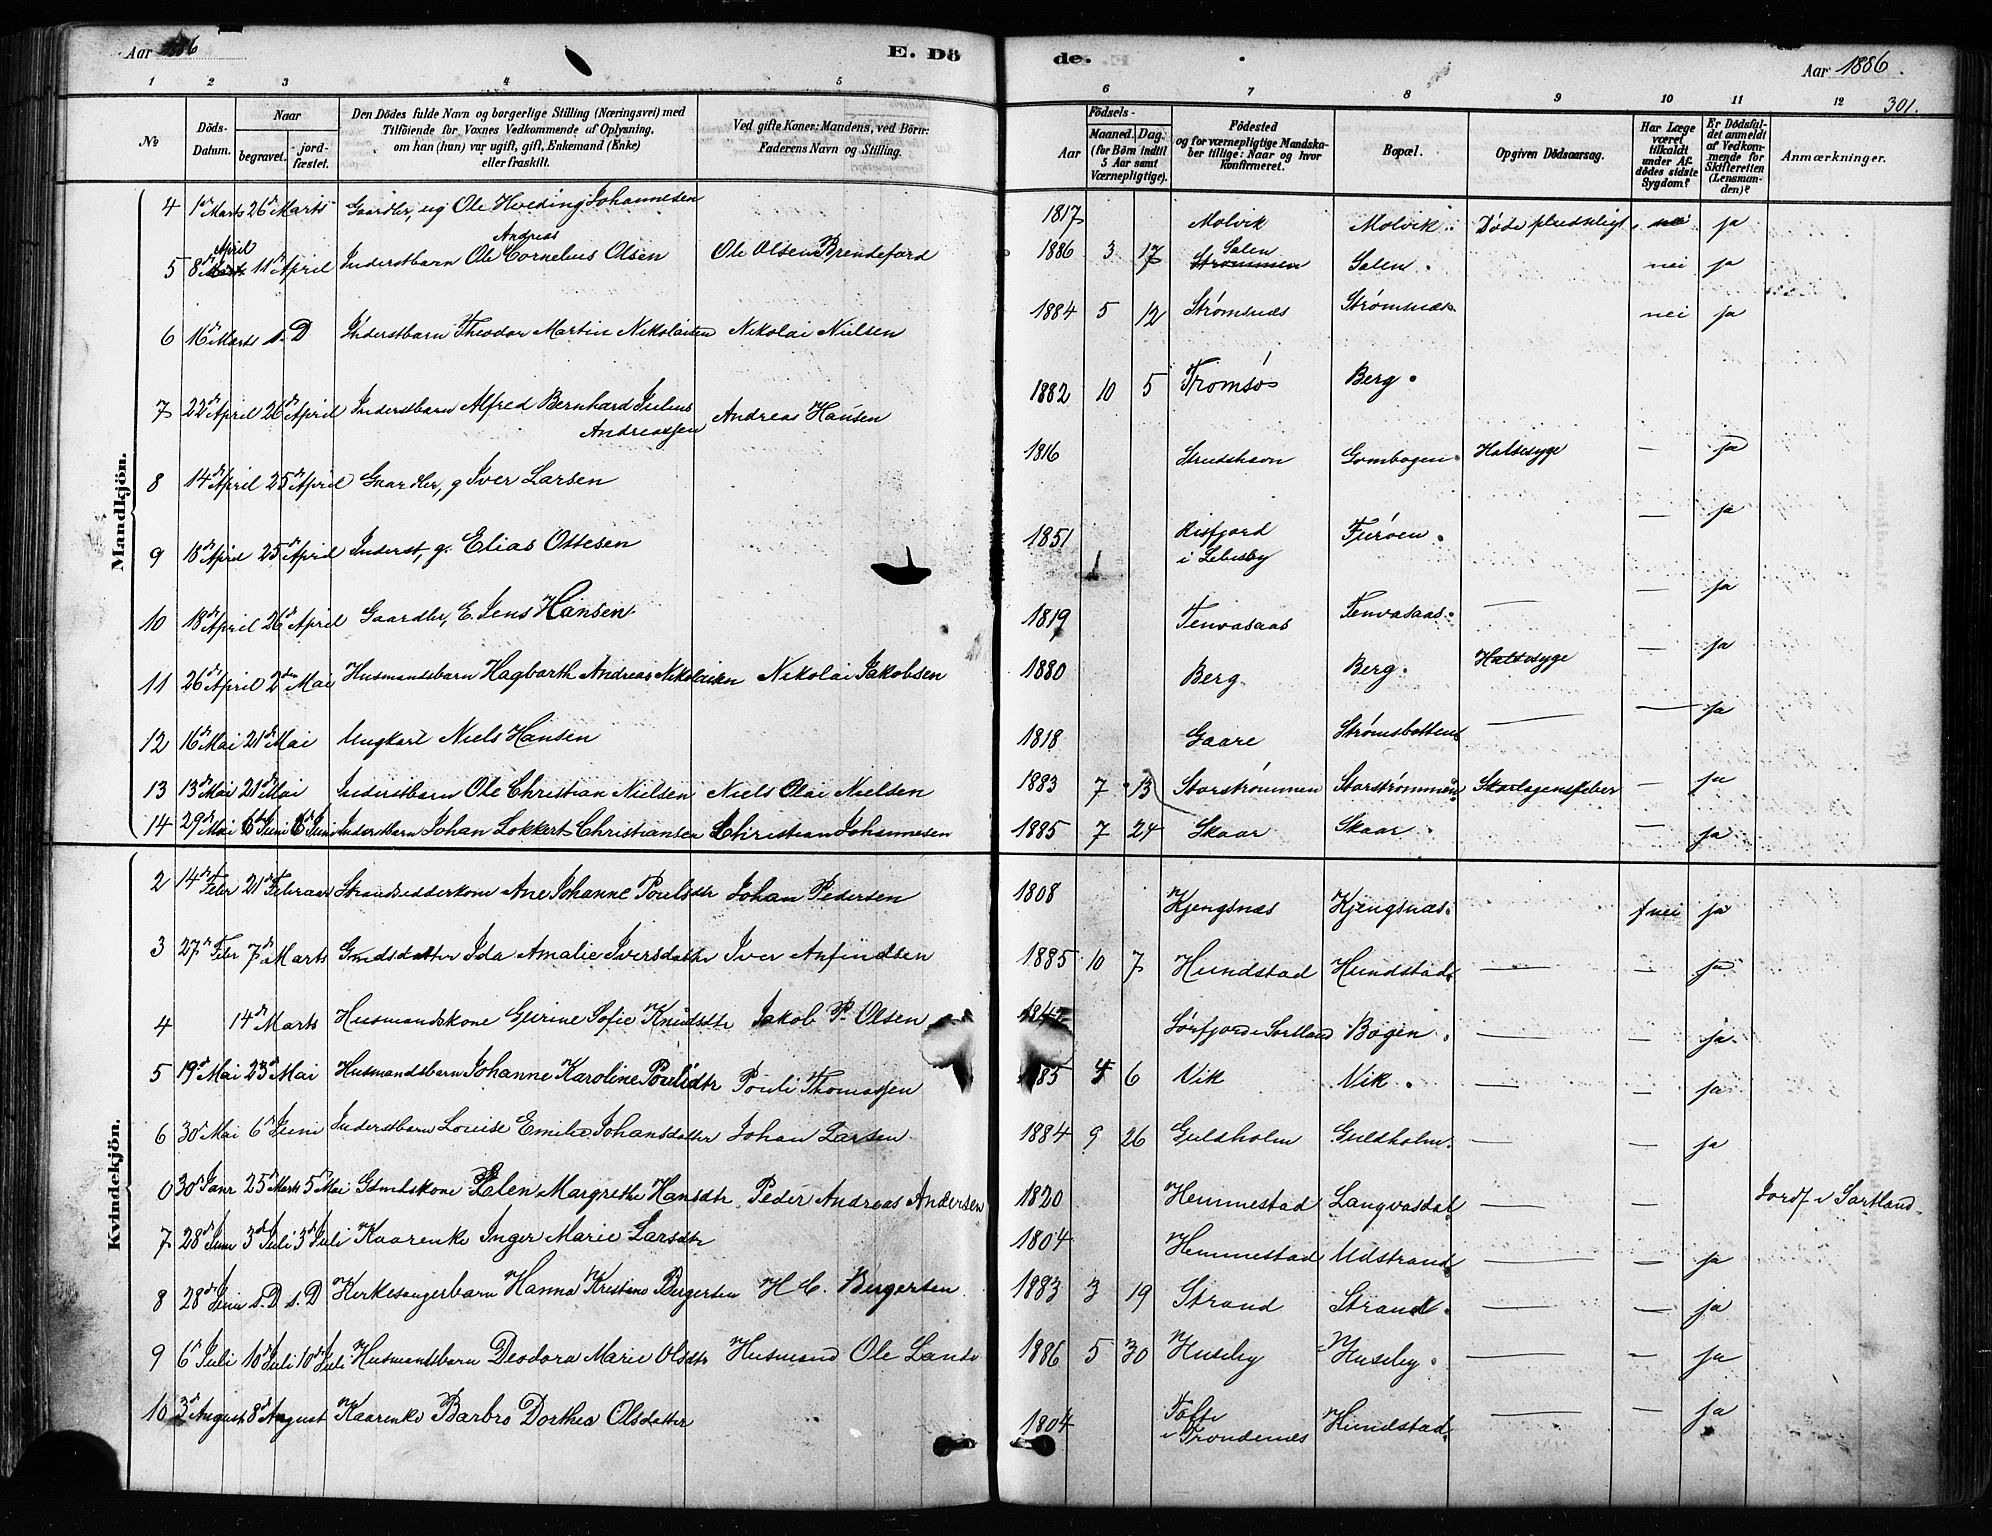 Aar 1886
E. Dö
de.
Aar 1886.
301.
1 2 3 4 5 6 7 8 9 10 11 12
№
Döds-Datum.
Naar
begravet.
jord-fæstet.
Den Dödes fulde Navn og borgerlige Stilling (Næringsvei) med
Tilföiende for Voxnes Vedkommende af Oplysning,
om han (hun) var ugift, gift, Enkemand (Enke)
eller fraskilt.
Ved gifte Koner: Mandens, ved Börn:
Faderens Navn og Stilling.
Födsels-
Aar
Maaned. Dag.
(for Börn indtil
5 Aar samt
Værnepligtige).
Födested
og for værnepligtige Mandska-
ber tillige: Naar og hvor
konfirmeret.
Bopæl.
Opgiven Dödsaarsag.
Har Læge
været
tilkaldt
under Af-
dödes sidste
Sygdom?
Er Dödsfal-
det anmeldt
af Vedkom-
mende for
Skifteretten
(Lensman-
den)?
Anmærkninger.
Mandkjön.
4 1 Marts 26 Marts Gaardbr, ug Ole Hveding Johannesen 1817 Molvik Molvik. Døde pludseligt nei ja
April Andreas Salen
5 8 Marts 11 April Inderstbarn Ole Cornelius Olsen Ole Olsen Brendeford 1886 3 17 Strømmen Salen. nei ja
6 16 Marts s. D Inderstbarn Theodor Martin Nikolaisen Nikolai Nielsen 1884 5 12 Strømsnæs Strømsnæs nei ja
7 22 April 26 April Inderstbarn Alfred Bernhard Julius Andreassen Andreas Hansen 1882 10 5 Tromsø Berg.
8 14 April 25 April Gaardbr, g Iver Larsen 1816 Gombogen. Halsesyge — ja
9 18 April 25 April Inderst, g. Elias Ottesen 1851 Risfjord i Lebesby — ja
10 18 April 26 April Gaardbr, E. Jens Hansen 1819 Tenvasaas Tenvasaas. — — ja
11 26 April 2den Mai Husmandsbarn Hagbarth Andreas Nikolaisen Nikolai Jakobsen 1880 Berg Berg. Halsesyge — ja
12 16 Mai 21 Mai Ungkarl Niels Hansen 1818 Gaare Strømsbotten — — ja
13 13 Mai 21 Mai Inderstbarn Ole Christian Nielsen Niels Olai Nielsen 1883 7 13 Storstrømmen Storstrømmen Skarlagensfeber — ja
14 29 Mai 6 Juni 6 Juni Inderstbarn Johan Lokkert Christiansen Christian Johannesen 1885 7 24 Skaar Skaar. — ja
Kvindekjön.
2 14 Febr 21 Februar Strandsidderkone Ane Johanne Poulsdtr Johan Pedersen 1808 Kjengsnæs Kjengsnæs. nei ja
3 27 Febr 7 Marts Gmdsdatter Ida Amalie Iversdatter Iver Anfindsen 1885 10 7 Hundstad Hundstad — — ja
4 14 Marts Husmandskone Gurine Sofie Knudsdtr Jakob P. Olsen Sørfjord i Sortland Bogen. — — ja.
5 19 Mai 23 Mai Husmandsbarn Johanne Karoline Poulidtr Pouli Thomassen 6 Vik Vik. — — ja
6 30 Mai 6 Juni Inderstbarn Louise Emilie Johansdatter Johan Larsen 1884 9 26 Guldholm Guldholm. — — ja
0 30 Janr 25 Marts 5 Mai Gdmdskone Malen Margrethe Hansdtr Peder Andreas Andersen 1820 Hemmestad Langvasdal — — Jordf i Sortland.
7 28 Juni 3 Juli 3 Juli Kaarenke Inger Marie Larsdtr 1804 Hemmestad Udstrand — — ja
8 28 Juni s. D s. D Kirkesangerbarn Hanna Kristine Bergersen H C. Bergersen 1883 3 19 Strand Strand. — — ja
9 6 Juli 10 Juli 10 Juli Husmandsbarn Deodora Marie Olsdtr Husmand Ole Lande 1886 5 30 Huseby Huseby. — — ja
10 3 August 8 August Kaarenke Barbro Dorthea Olsdatter 1804 Tofte i Trondenæs Hundstad. — — ja